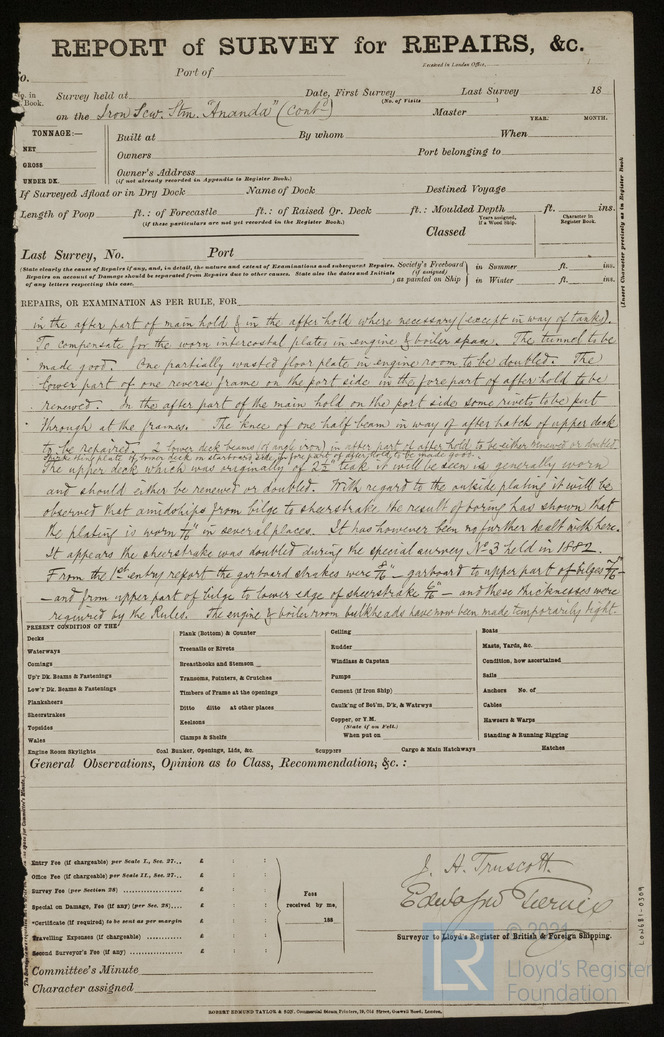 REPORT of SURVEY for REPAIRS, &c.
Received in London Office,
No.
Port of
Survey held at Date, First Survey Last Survey 18
(No. of Visits )
in Book.
on the Iron Scw. Stm. "Ananda" (Contd) Master YEAR. MONTH.
TONNAGE:—
NET
GROSS
UNDER DK.
Built at By whom When
Owners Port belonging to
Owner's Address
(if not already recorded in Appendix to Register Book.)
If Surveyed Afloat or in Dry Dock Name of Dock Destined Voyage
Length of Poop ft.: of Forecastle ft.: of Raised Qr. Deck ft.: Moulded Depth ft. ins.
(if these particulars are not yet recorded in the Register Book.)
Years assigned, if a Wood Ship.
Character in Register Book.
Classed
(Insert Character precisely as in Register Book
Last Survey, No. Port
(State clearly the cause of Repairs if any, and, in detail, the nature and extent of Examinations and subsequent Repairs.
Repairs on account of Damage should be separated from Repairs due to other causes. State also the dates and Initials
of any letters respecting this case.
Society's Freeboard (if assigned) as painted on Ship
in Summer ft. ins.
in Winter ft. ins.
REPAIRS, OR EXAMINATION AS PER RULE, FOR
in the after part of main hold & in the after hold where necessary (except in way of tank).
To compensate for the worn intercostal plates in engine & boiler space. The tunnel to be
made good. One partially wasted floor plate in engine room to be doubled. The
lower part of one reverse frame on the port side in the fore part of after hold to be
renewed. In the after part of the main hold on the port side some rivets to be put
through at the frames. The knee of one half beam in way of after hatch of upper deck
to be repaired. 2 lower deck beams (of angle iron) in after part of after hold to be either renewed or doubled
plate of lower deck on starboard side, in fore part of after hold, to be made good.
The upper deck which was originally of 2½" teak it will be seen is generally worn
and should either be renewed or doubled. With regard to the outside plating it will be
observed that amidships from bilge to sheerstrake the result of boring has shown that
the plating is worn in several places. It has however been no further dealt with here.
It appears the sheerstrake was doubled during the special survey No 3 held in 1882.
From the 1st entry report the garboard strakes were 8/16" – garboard to upper part of bilges 7/16" –
– and from upper part of bilge to lower edge of sheerstrake 6/16" – and these thicknesses were
required by the Rules. The engine & boiler room bulkheads have now been made temporarily tight.
PRESENT CONDITION OF THE
Decks
Waterways
Comings
Up'r Dk. Beams & Fastenings
Low'r Dk. Beams & Fastenings
Planksheers
Sheerstrakes
Topsides
Wales
Engine Room Skylights
Plank (Bottom) & Counter
Treenails or Rivets
Breasthooks and Stemson
Transoms, Pointers, & Crutches
Timbers of Frame at the openings
Ditto ditto at other places
Keelsons
Clamps & Shelfs
Coal Bunker, Openings, Lids, &c.
Ceiling
Rudder
Windlass & Capstan
Pumps
Cement (if Iron Ship)
Caulk'ng of Bot'm, D'k, & Watrwys
Copper, or Y.M.
(State if on Felt.)
When put on
Scuppers
Cargo & Main Hatchways
Boats
Masts, Yards, &c.
Condition, how ascertained
Sails
Anchors No. of
Cables
Hawsers & Warps
Standing & Running Rigging
Hatches
General Observations, Opinion as to Class, Recommendation, &c.:
Entry Fee (if chargeable) per Scale I., Sec. 27... £ : :
Office Fee (if chargeable) per Scale II., Sec. 27... £ : :
Survey Fee (per Section 28) £ : :
Special on Damage, Fee (if any) (per Sec. 28).... £ : :
*Certificate (if required) to be sent as per margin £ : :
Travelling Expenses (if chargeable) £ : :
Second Surveyor's Fee (if any) £ : :
Fees
received by me,
188
J. H. Truscott
Edward
Surveyor to Lloyd's Register of British & Foreign Shipping.
Committee's Minute
Character assigned
ROBERT EDMUND TAYLOR & SON, Commercial Steam Printers, 19, Old Street, Goswell Road, London.
LON681-0309
© 2021
LR
Lloyd's Register
Foundation